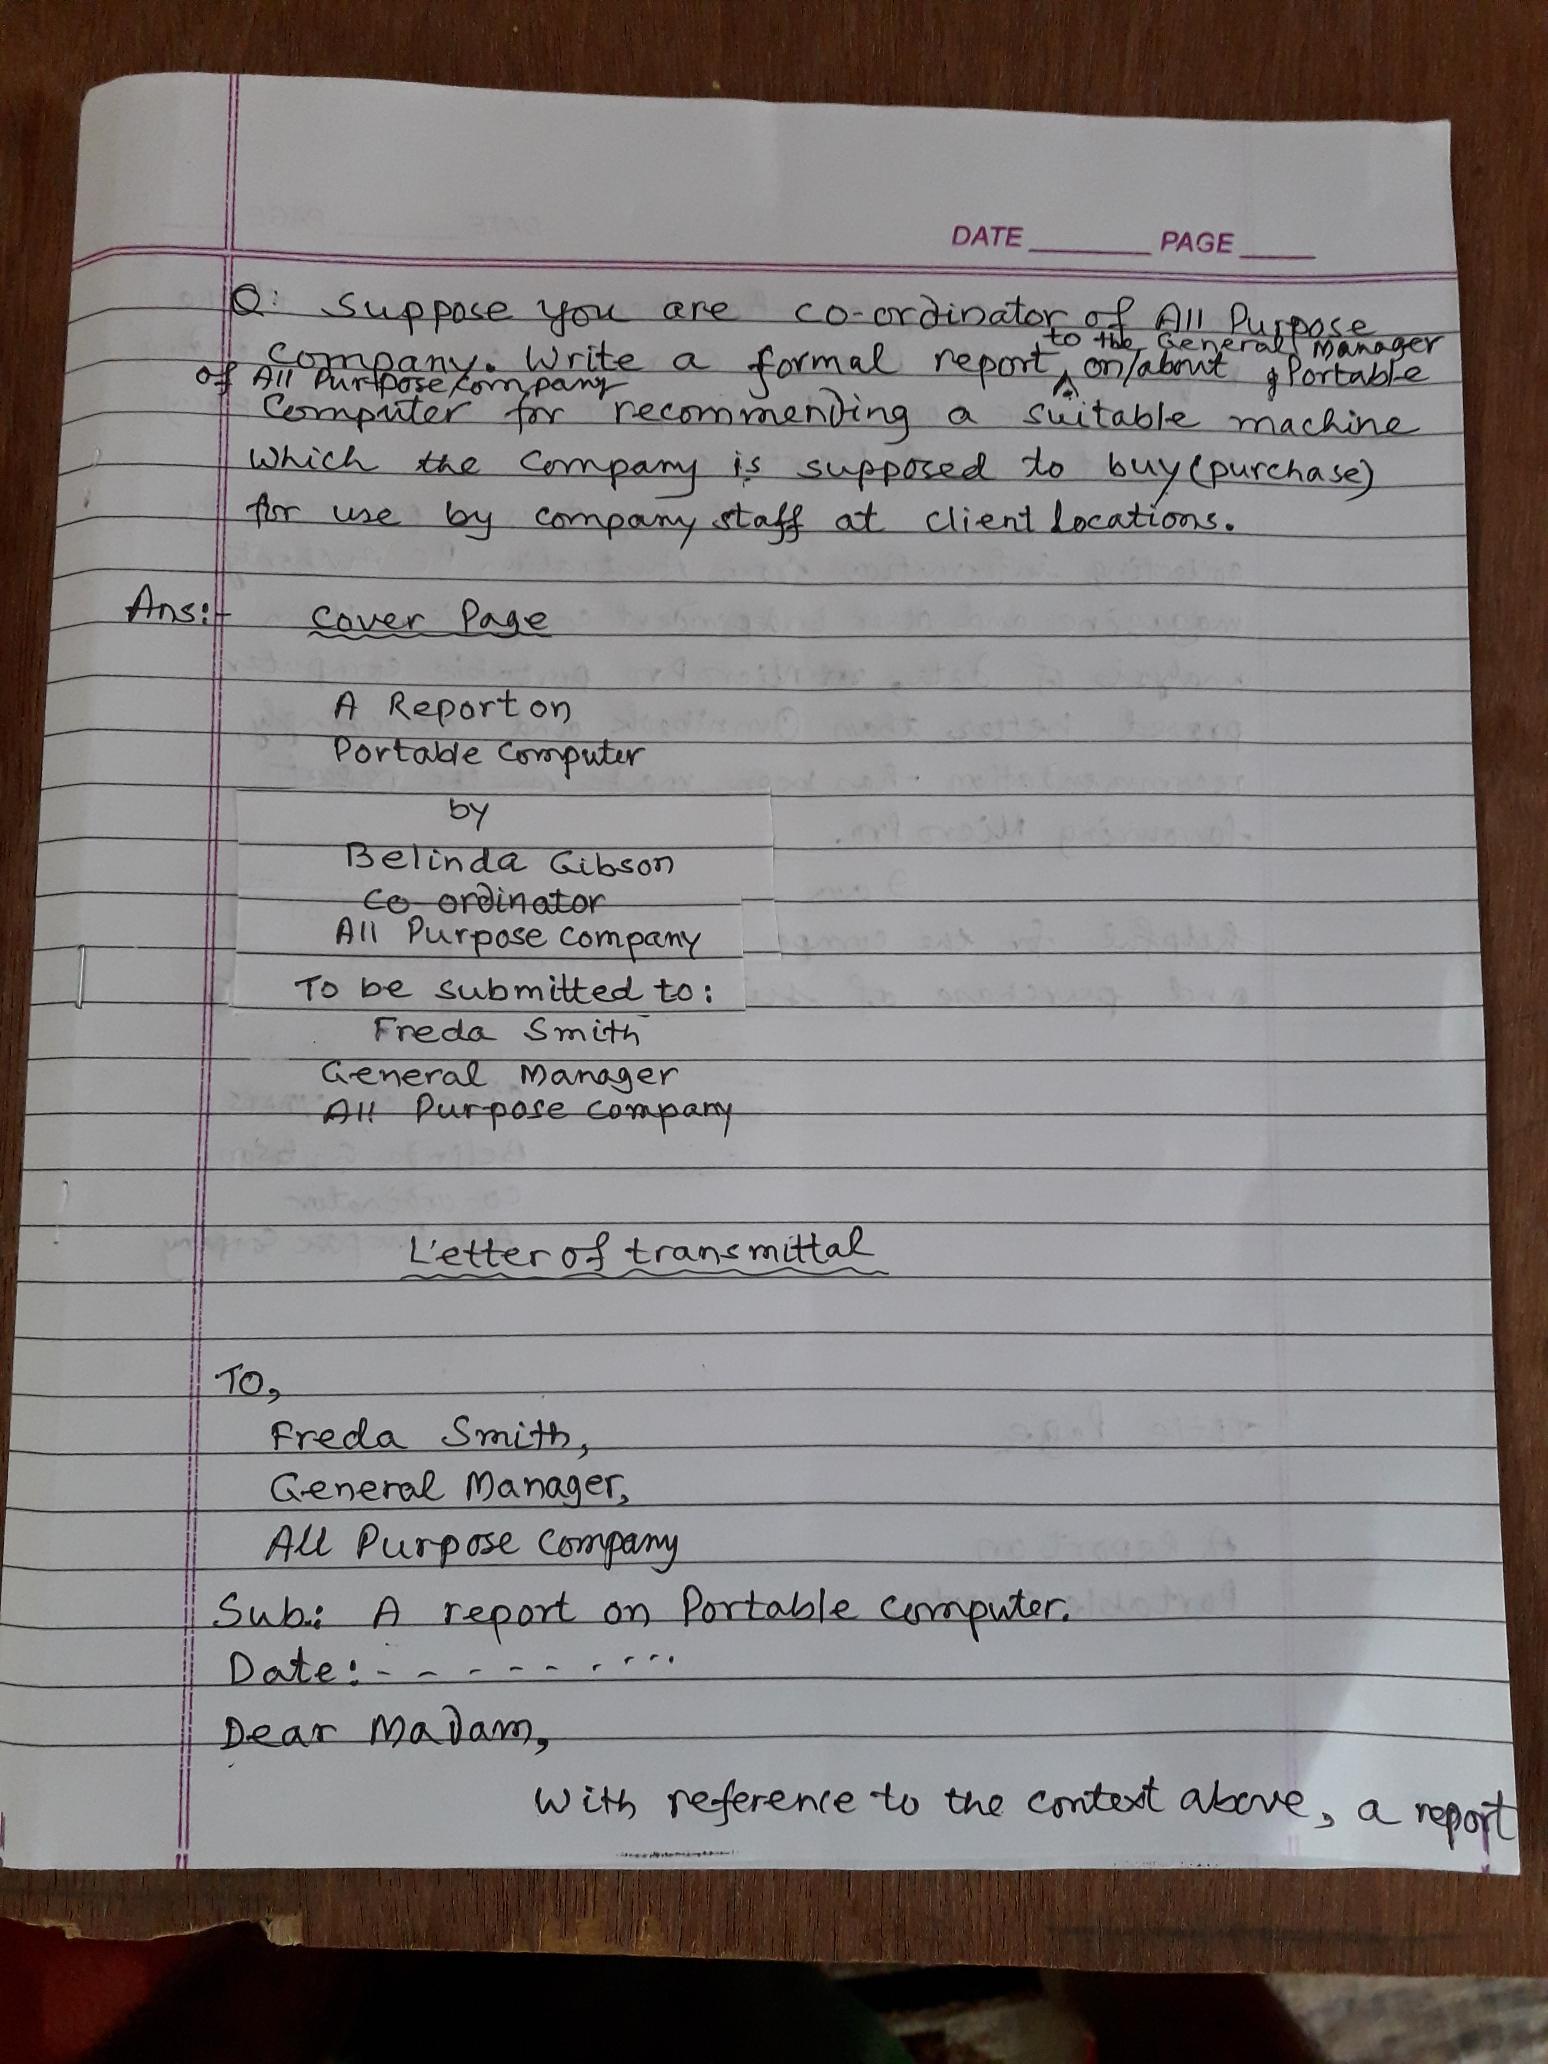 DATE PAGE
Q: Suppose you are co-ordinator of All Purpose
to the General Manager
Company. Write a formal report on/about Portable
of All Purpose Company
Computer for recommending a suitable machine
which the company is supposed to buy (purchase)
for use by company staff at client locations.
Ans:- Cover Page
A Report on
Portable Computer
by
Belinda Gibson
Co-ordinator
All Purpose Company
To be submitted to:
Freda Smith
General Manager
All Purpose Company
Letter of transmittal
TO,
Freda Smith,
General Manager,
All Purpose Company
Sub: A report on Portable Computer.
Date:- - - - - - . . . .
Dear Madam,
With reference to the context above, a report